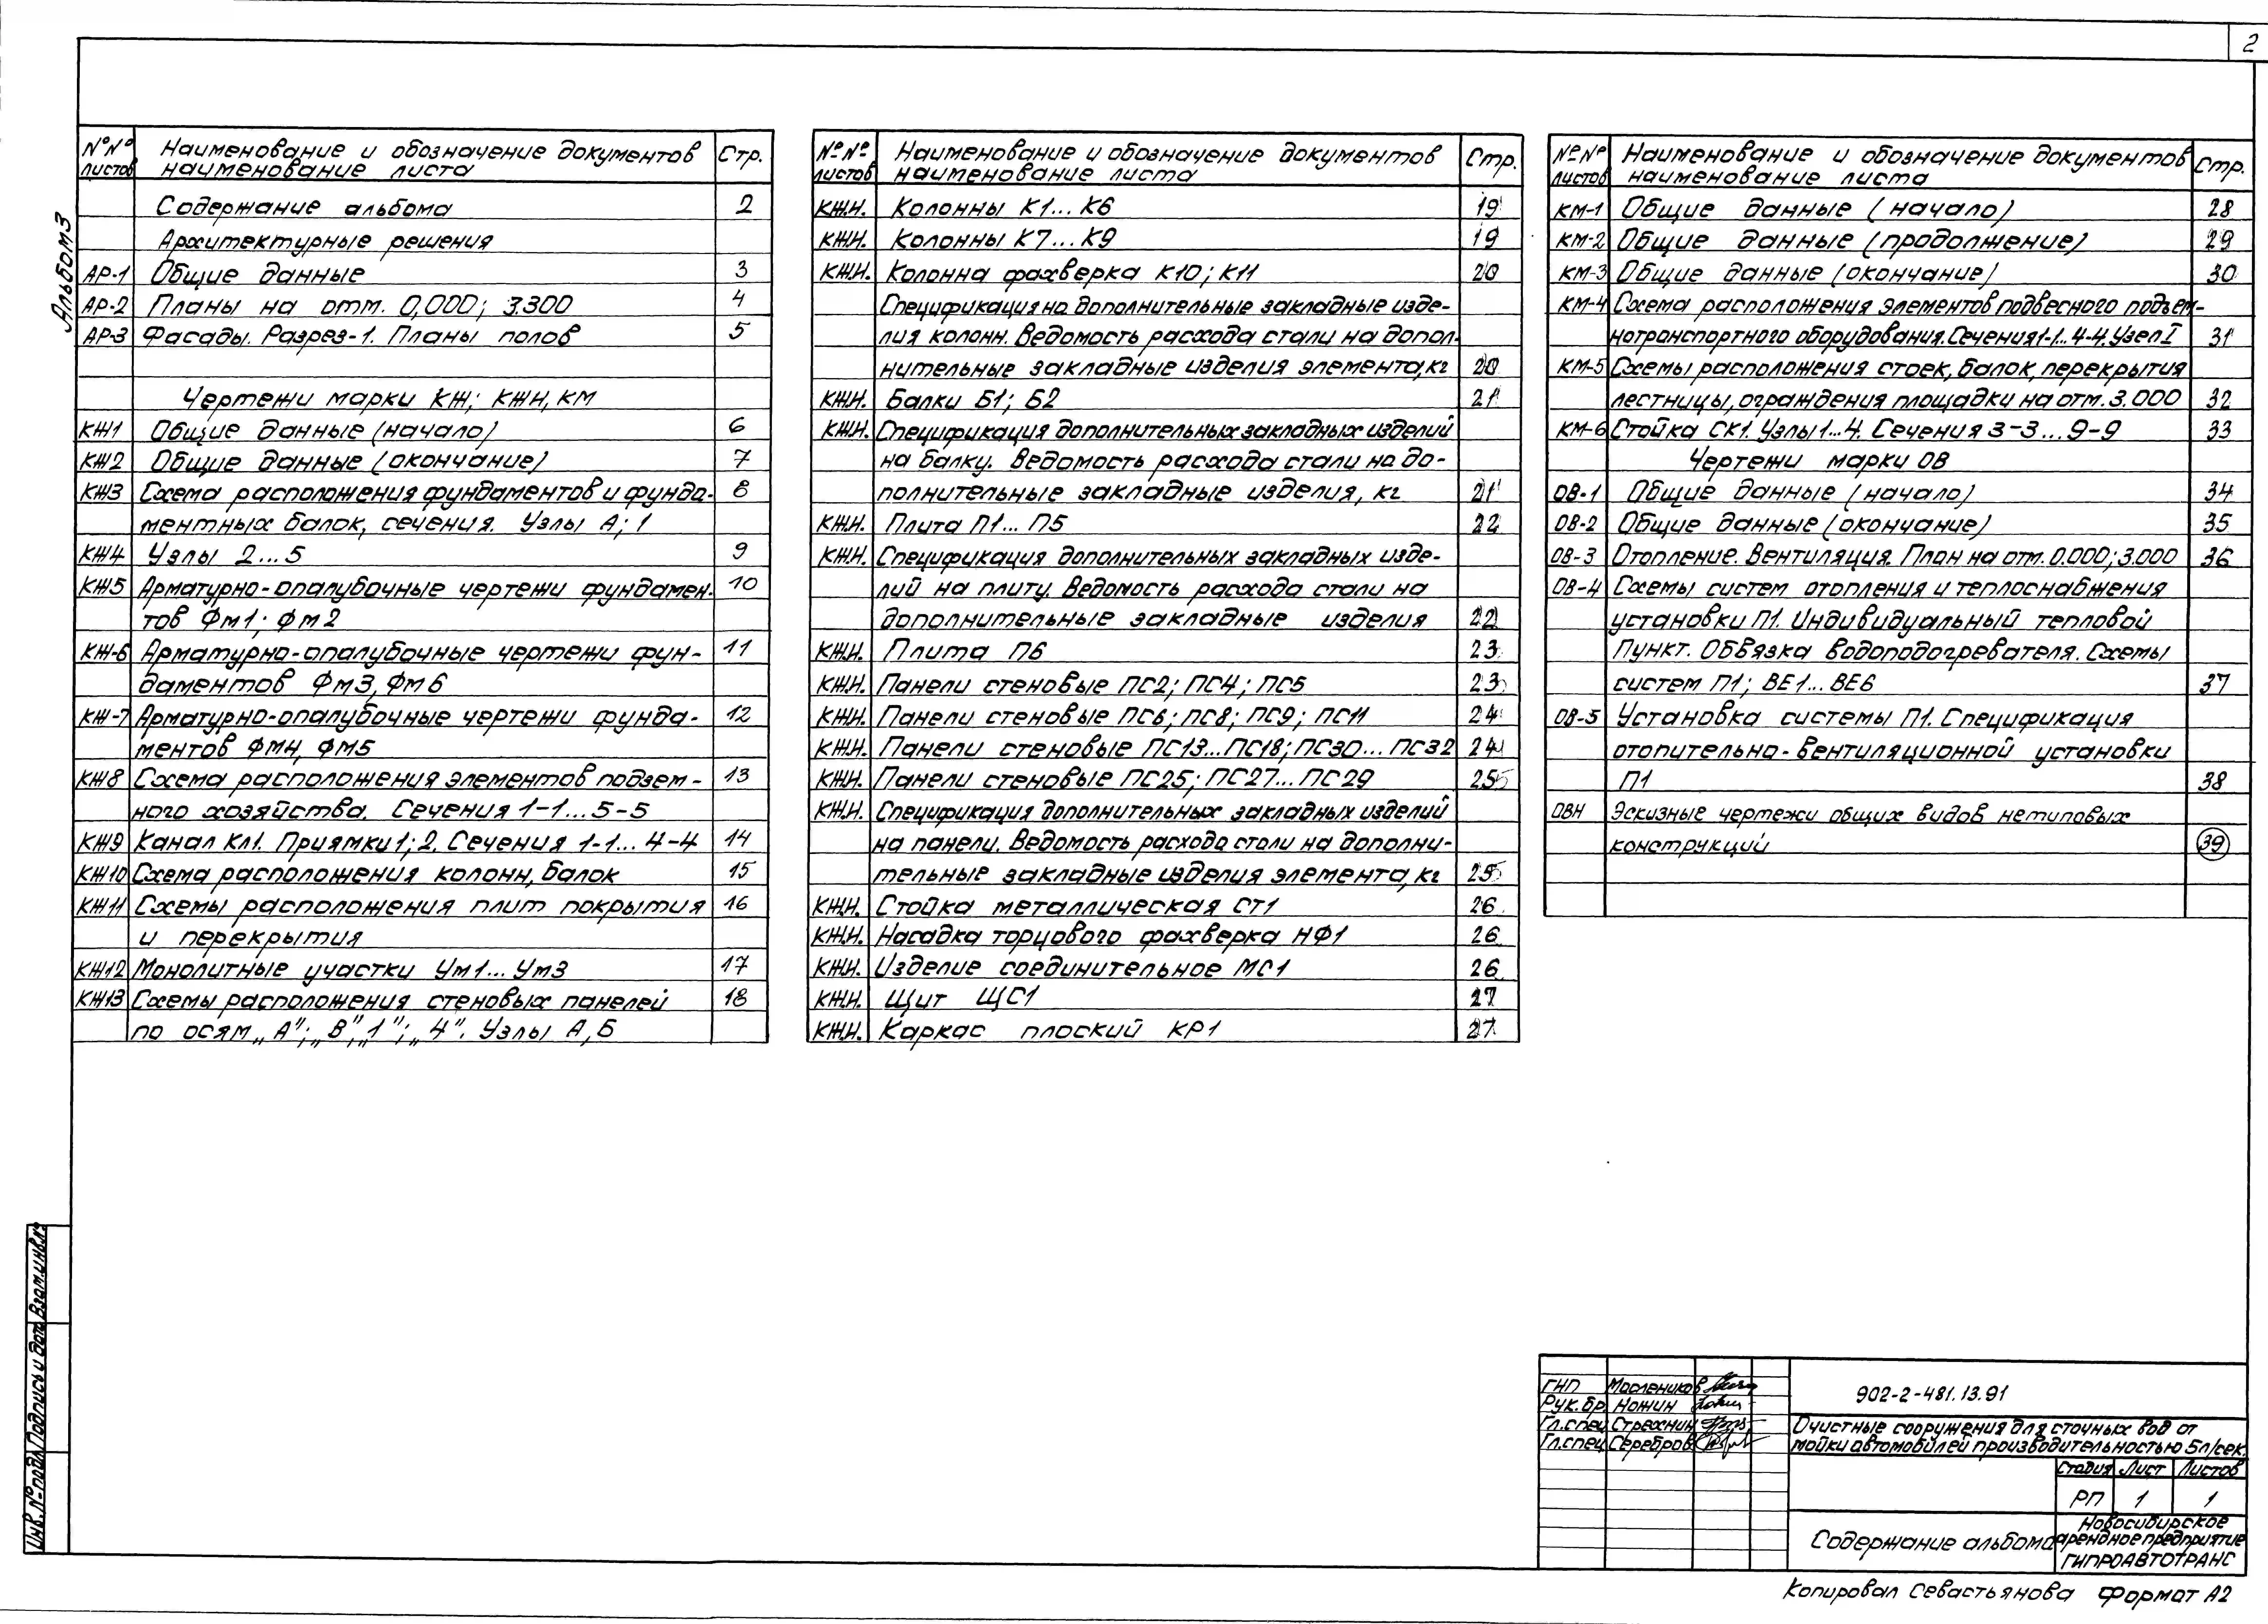 2
Альбом 3
№№ листов Наименование и обозначение документов наименование листа Стр.
Содержание альбома 2
Архитектурные решения
АР-1 Общие данные 3
АР-2 Планы на отм. 0,000; 3.300 4
АР-3 Фасады. Разрез-1. Планы полов 5
Чертежи марки КЖ; КЖН, КМ
КЖ1 Общие данные (начало) 6
КЖ2 Общие данные (окончание) 7
КЖ3 Схема расположения фундаментов и фунда- 8
ментных балок, сечения. Узлы А; 1
КЖ4 Узлы 2...5 9
КЖ5 Арматурно-опалубочные чертежи фундамен- 10
тов Фм1; Фм2
КЖ-6 Арматурно-опалубочные чертежи фун- 11
даментов Фм3, Фм6
КЖ-7 Арматурно-опалубочные чертежи фунда- 12
ментов ФМ4, ФМ5
КЖ8 Схема расположения элементов подзем- 13
ного хозяйства. Сечения 1-1...5-5
КЖ9 Канал Кл1. Приямки 1; 2. Сечения 1-1...4-4 14
КЖ10 Схема расположения колонн, балок 15
КЖ11 Схемы расположения плит покрытия 16
и перекрытия
КЖ12 Монолитные участки Ум1...Ум3 17
КЖ13 Схемы расположения стеновых панелей 18
по осям „А"; „В", „1"; „4". Узлы А, Б
№№ листов Наименование и обозначение документов наименование листа Стр.
КЖ.И. Колонны К1...К6 19
КЖ.И. Колонны К7...К9 19
КЖ.И. Колонна фахверка К10; К11 20
Спецификация на дополнительные закладные изде-
лия колонн. Ведомость расхода стали на допол-
нительные закладные изделия элемента, кг 20
КЖ.И. Балки Б1; Б2 21
КЖ.И. Спецификация дополнительных закладных изделий
на балку. Ведомость расхода стали на до-
полнительные закладные изделия, кг 21
КЖ.И. Плита П1...П5 22
КЖ.И. Спецификация дополнительных закладных изде-
лий на плиту. Ведомость расхода стали на
дополнительные закладные изделия 22
КЖ.И. Плита П6 23
КЖ.И. Панели стеновые ПС2; ПС4; ПС5 23
КЖ.И. Панели стеновые ПС6; ПС8; ПС9; ПС11 24
КЖ.И. Панели стеновые ПС13...ПС18; ПС30...ПС32 24
КЖ.И. Панели стеновые ПС25; ПС27...ПС29 25
КЖ.И. Спецификация дополнительных закладных изделий
на панели. Ведомость расхода стали на дополни-
тельные закладные изделия элемента, кг 25
КЖ.И. Стойка металлическая СТ1 26
КЖ.И. Насадка торцового фахверка НФ1 26
КЖ.И. Изделие соединительное МС1 26
КЖ.И. Щит ЩС1 27
КЖ.И. Каркас плоский КР1 27
№№ листов Наименование и обозначение документов наименование листа Стр.
КМ-1 Общие данные (начало) 28
КМ-2 Общие данные (продолжение) 29
КМ-3 Общие данные (окончание) 30
КМ-4 Схема расположения элементов подвесного подъем-
нотранспортного оборудования. Сечения 1-1...4-4. Узел I 31
КМ-5 Схемы расположения стоек, балок, перекрытия
лестницы, ограждения площадки на отм. 3.000 32
КМ-6 Стойка СК1. Узлы 1...4. Сечения 3-3...9-9 33
Чертежи марки ОВ
ОВ-1 Общие данные (начало) 34
ОВ-2 Общие данные (окончание) 35
ОВ-3 Отопление. Вентиляция. План на отм. 0.000; 3.000 36
ОВ-4 Схемы систем отопления и теплоснабжения
установки П1. Индивидуальный тепловой
Пункт. Обвязка водоподогревателя. Схемы
систем П1; ВЕ1...ВЕ6 37
ОВ-5 Установка системы П1. Спецификация
отопительно-вентиляционной установки
П1 38
ОВН Эскизные чертежи общих видов нетиповых
конструкций 39
Инв. № подл. Подпись и дата Взам.инв.№
ГИП Маслеников
Рук.бр Ножин
Гл.спец Стрехнин
Гл.спец Серебров
902-2-481.13.91
Очистные сооружения для сточных вод от
мойки автомобилей производительностью 5л/сек.
Стадия Лист Листов
РП 1 1
Содержание альбома
Новосибирское
арендное предприятие
ГИПРОАВТОТРАНС
Копировал Севастьянова Формат А2